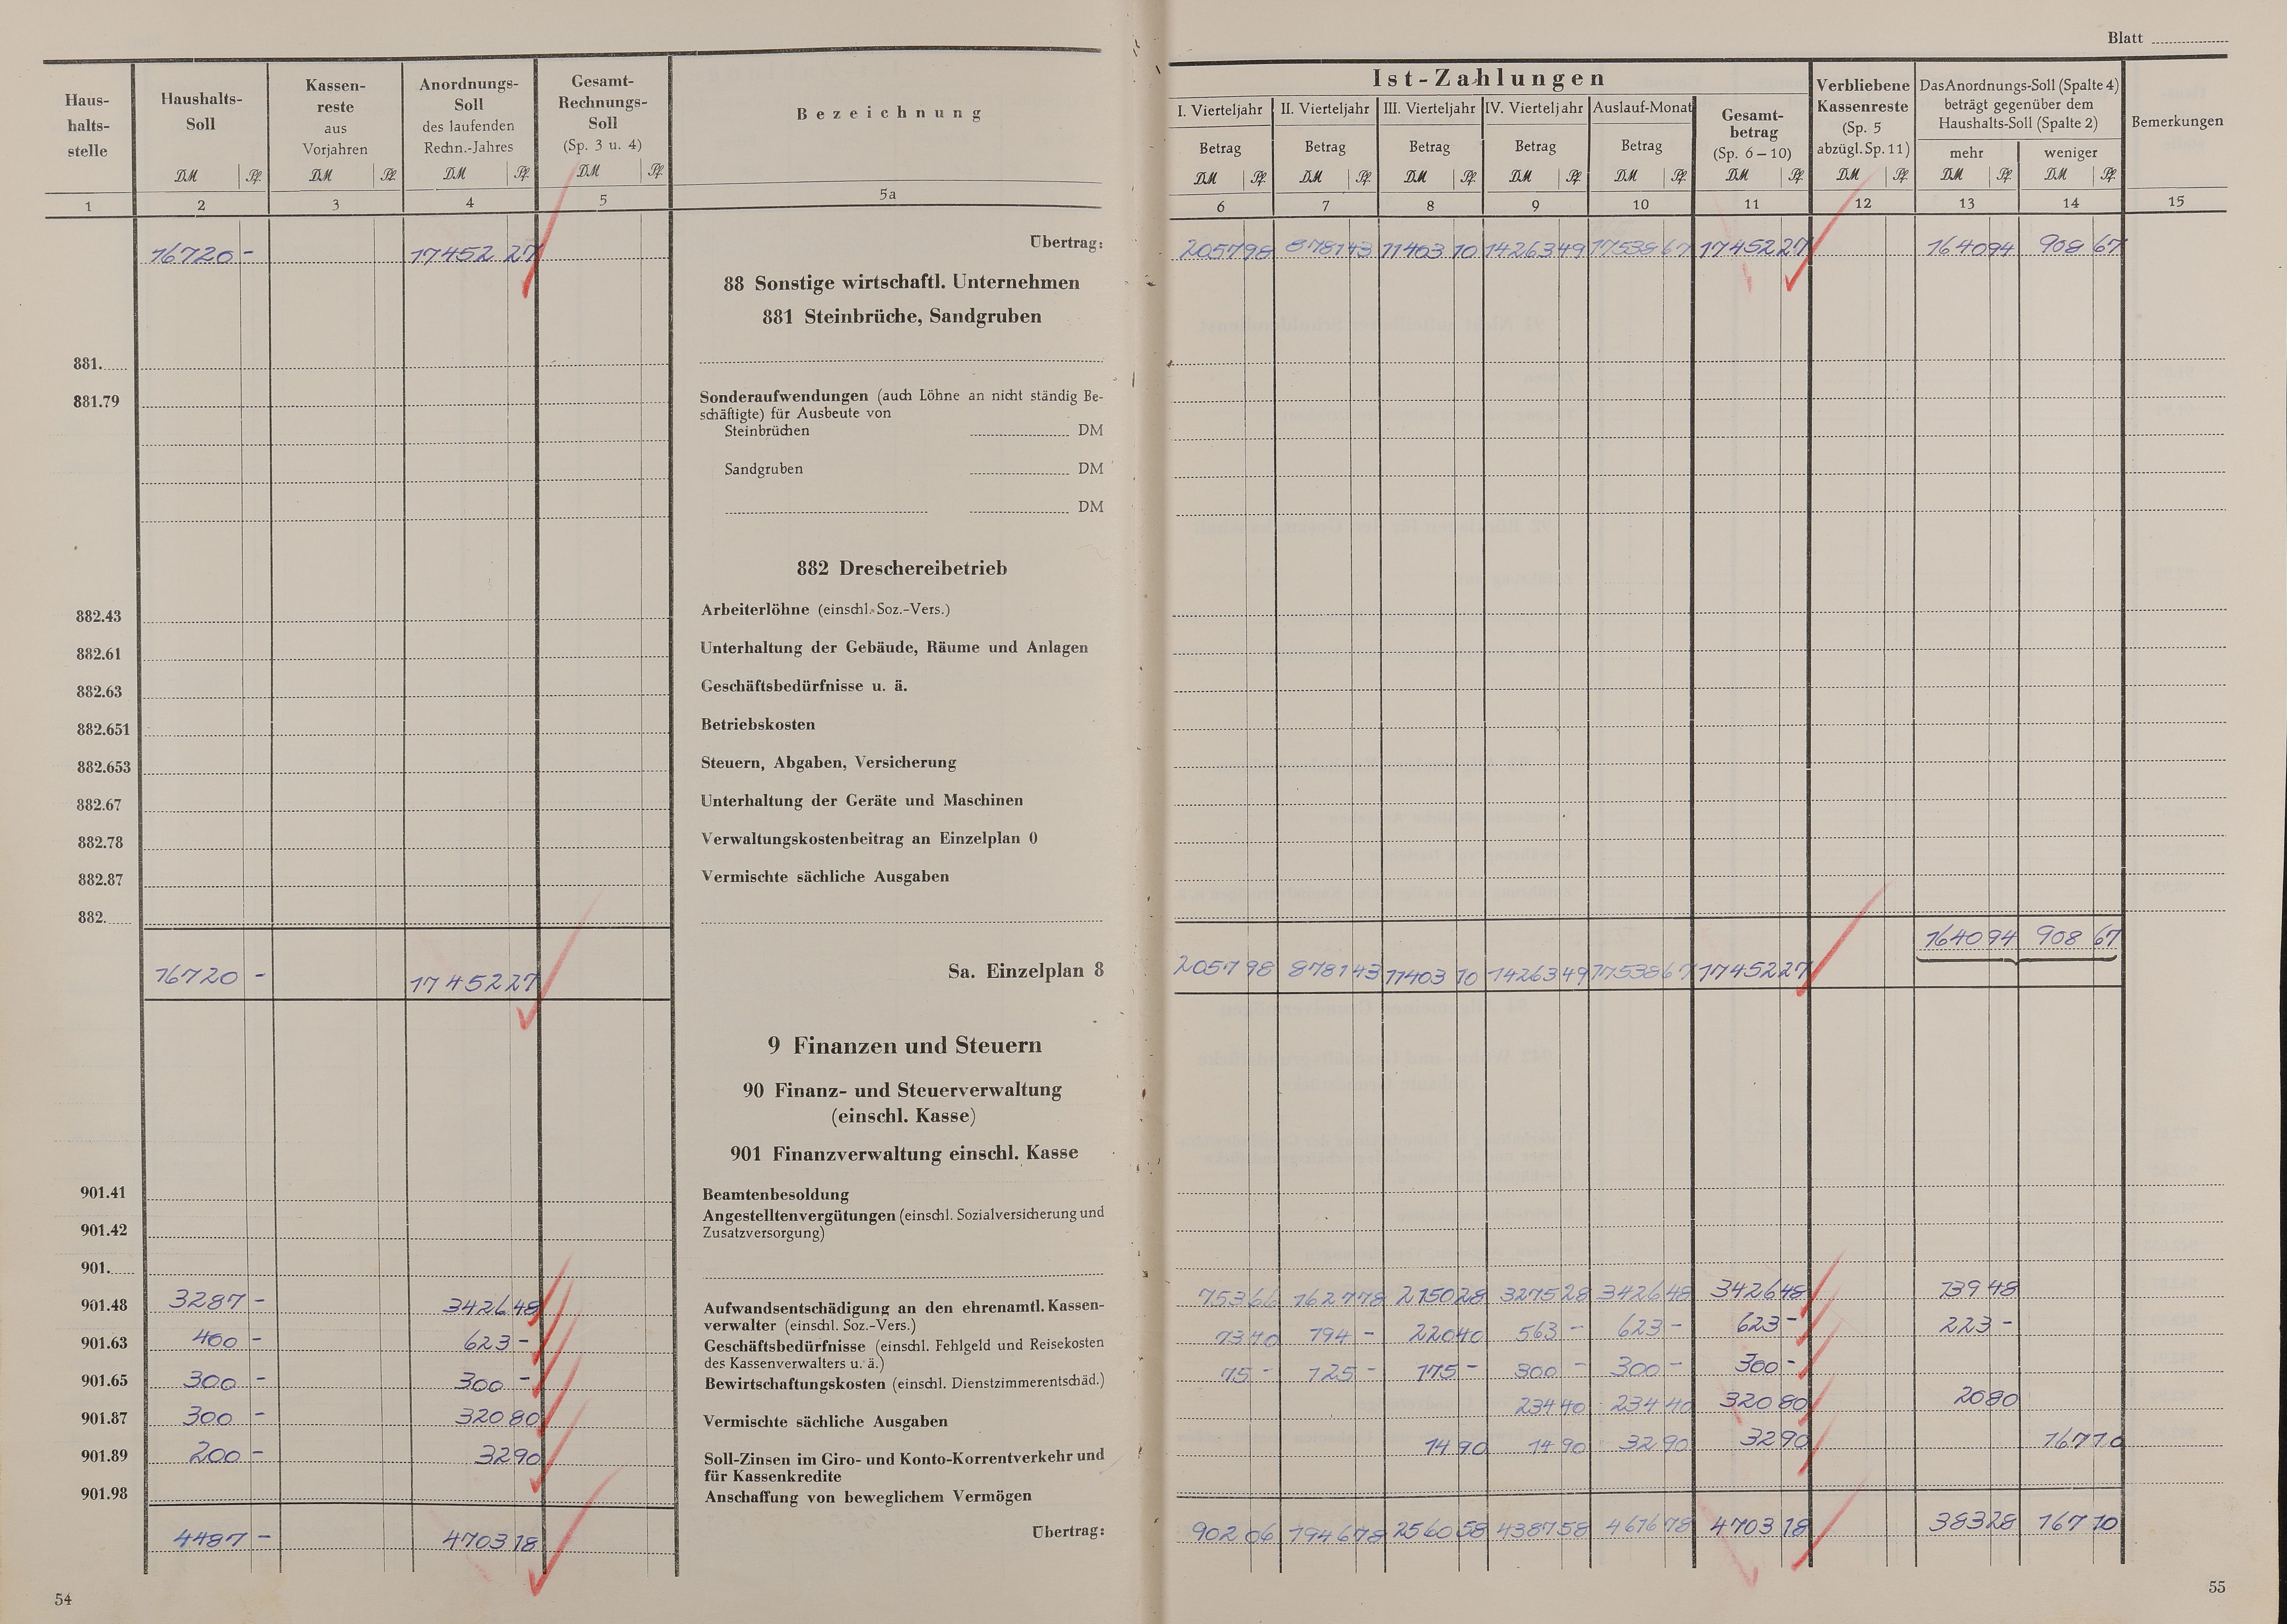 Blatt
Haus-
halts-
stelle
Haushalts-
Soll
DM Pf.
Kassen-
reste
aus
Vorjahren
DM Pf.
Anordnungs-
Soll
des laufenden
Rechn.-Jahres
DM Pf.
Gesamt-
Rechnungs-
Soll
(Sp. 3 u. 4)
DM Pf.
Bezeichnung
Ist-Zahlungen
I. Vierteljahr
Betrag
DM Pf.
II. Vierteljahr
Betrag
DM Pf.
III. Vierteljahr
Betrag
DM Pf.
IV. Vierteljahr
Betrag
DM Pf.
Auslauf-Monat
Betrag
DM Pf.
Gesamt-
betrag
(Sp. 6–10)
DM Pf.
Verbliebene
Kassenreste
(Sp. 5
abzügl. Sp. 11)
DM Pf.
Das Anordnungs-Soll (Spalte 4)
beträgt gegenüber dem
Haushalts-Soll (Spalte 2)
mehr weniger
DM Pf. DM Pf.
Bemerkungen
1 2 3 4 5 5a 6 7 8 9 10 11 12 13 14 15
16720 - 17452 27 Übertrag: 2057 98 8781 43 11403 10 14263 49 17538 67 17452 27 1640 94 908 67
88 Sonstige wirtschaftl. Unternehmen
881 Steinbrüche, Sandgruben
881.
881.79 Sonderaufwendungen (auch Löhne an nicht ständig Be-
schäftigte) für Ausbeute von
Steinbrüchen DM
Sandgruben DM
DM
882 Dreschereibetrieb
882.43 Arbeiterlöhne (einschl. Soz.-Vers.)
882.61 Unterhaltung der Gebäude, Räume und Anlagen
882.63 Geschäftsbedürfnisse u. ä.
882.651 Betriebskosten
882.653 Steuern, Abgaben, Versicherung
882.67 Unterhaltung der Geräte und Maschinen
882.78 Verwaltungskostenbeitrag an Einzelplan 0
882.87 Vermischte sächliche Ausgaben
882.
1640 94 908 67
16720 - 17452 27 Sa. Einzelplan 8 2057 98 8781 43 11403 10 14263 49 17538 67 17452 27
9 Finanzen und Steuern
90 Finanz- und Steuerverwaltung
(einschl. Kasse)
901 Finanzverwaltung einschl. Kasse
901.41 Beamtenbesoldung
901.42 Angestelltenvergütungen (einschl. Sozialversicherung und
Zusatzversorgung)
901.
901.48 3287 - 3426 48 Aufwandsentschädigung an den ehrenamtl. Kassen-
verwalter (einschl. Soz.-Vers.) 753 66 1627 78 2150 28 3275 28 3426 48 3426 48 139 48
901.63 400 - 623 - Geschäftsbedürfnisse (einschl. Fehlgeld und Reisekosten
des Kassenverwalters u. ä.) 73 40 194 - 220 40 563 - 623 - 623 - 223 -
901.65 300 - 300 - Bewirtschaftungskosten (einschl. Dienstzimmerentschäd.) 75 - 125 - 175 - 300 - 300 - 300 -
901.87 300 - 320 80 Vermischte sächliche Ausgaben 234 40 234 40 320 80 20 80
901.89 200 - 32 90 Soll-Zinsen im Giro- und Konto-Korrentverkehr und
für Kassenkredite 14 90 14 90 32 90 32 90 167 10
901.98 Anschaffung von beweglichem Vermögen
4487 - 4703 18 Übertrag: 902 06 1946 78 2560 58 4387 58 4616 78 4703 18 383 28 167 10
54
55